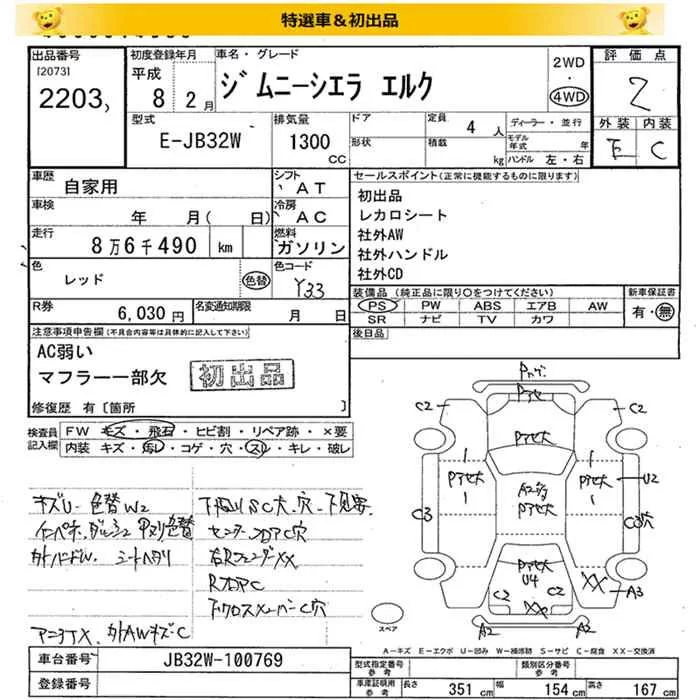 特選車＆初出品
出品番号
[2073]
2203,
初度登録年月
平成
8 2月
車名・グレード
ジムニーシエラ エルク
2WD
・
4WD
評価点
2
型式
E-JB32W
排気量
1300
CC
ドア
形状
定員 4 人
積載 kg
ディーラー・並行
モデル年式 年
ハンドル 左・右
外装 内装
E C
車歴
自家用
シフト
AT
車検
年 月( 日)
冷房
AC
走行
8万6千490 km
燃料
ガソリン
色
レッド
色替
色コード
Y33
R券
6,030円
名変通知期限
月 日
セールスポイント(正常に機能するものに限ります)
初出品
レカロシート
社外AW
社外ハンドル
社外CD
装備品 (純正品に限り○をつけてください)
新車保証書
PS PW ABS エアB AW
SR ナビ TV カワ
有・無
後日品
注意事項申告欄(不具合内容等は具体的に記入して下さい)
AC弱い
マフラー一部欠
初出品
修復歴 有〔箇所 〕
検査員記入欄
FW キズ・飛石・ヒビ割・リペア跡・×要
内装 キズ・汚レ・コゲ・穴・スレ・キレ・破レ
キズU 色替W2
シートヘタリ
センターフロアC穴
右Rフェンダー XX
RフロアC
下クロスメンバーC穴
外AWキズC
C2
C2
U2
C3
C3穴
U4
C2
C2
XX
XX
A3
A2
A2
スペア
A－キズ E－エクボ U－凹み W－補修跡 S－サビ C－腐食 XX－交換済
車台番号
JB32W-100769
登録番号
型式指定番号
参考
類別区分番号
参考
車庫証明用
参考
長さ 351 cm
幅 154 cm
高さ 167 cm